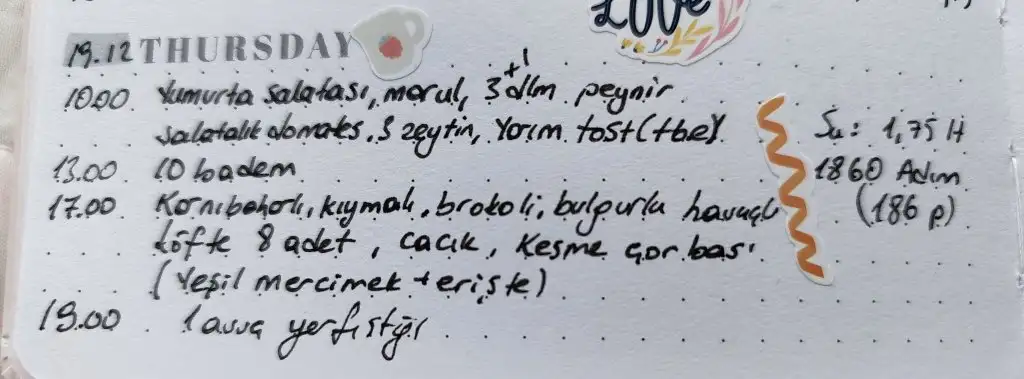 LOVE
19.12 THURSDAY
10.00 Yumurta salatası, marul, 3+1 dlm peynir
salatalık domates, 3 zeytin, Yarım tost (tbe)
Su: 1,75 lt
13.00 10 badem
1860 Adım
17.00 Karnıbaharlı, kıymalı, brokoli, bulgurlu havuçlu
(186 p)
köfte 8 adet, cacık, Kesme çorbası
(Yeşil mercimek + erişte)
19.00 1 avuç yerfıstığı